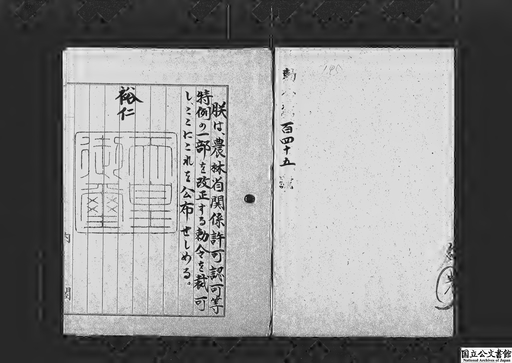 百四十五
朕は、農林省関係許可認可等
特例の一部を改正する勅令を裁可
し、ここにこれを公布せしめる。
裕仁
天皇
御璽
内閣
国立公文書館
National Archives of Japan